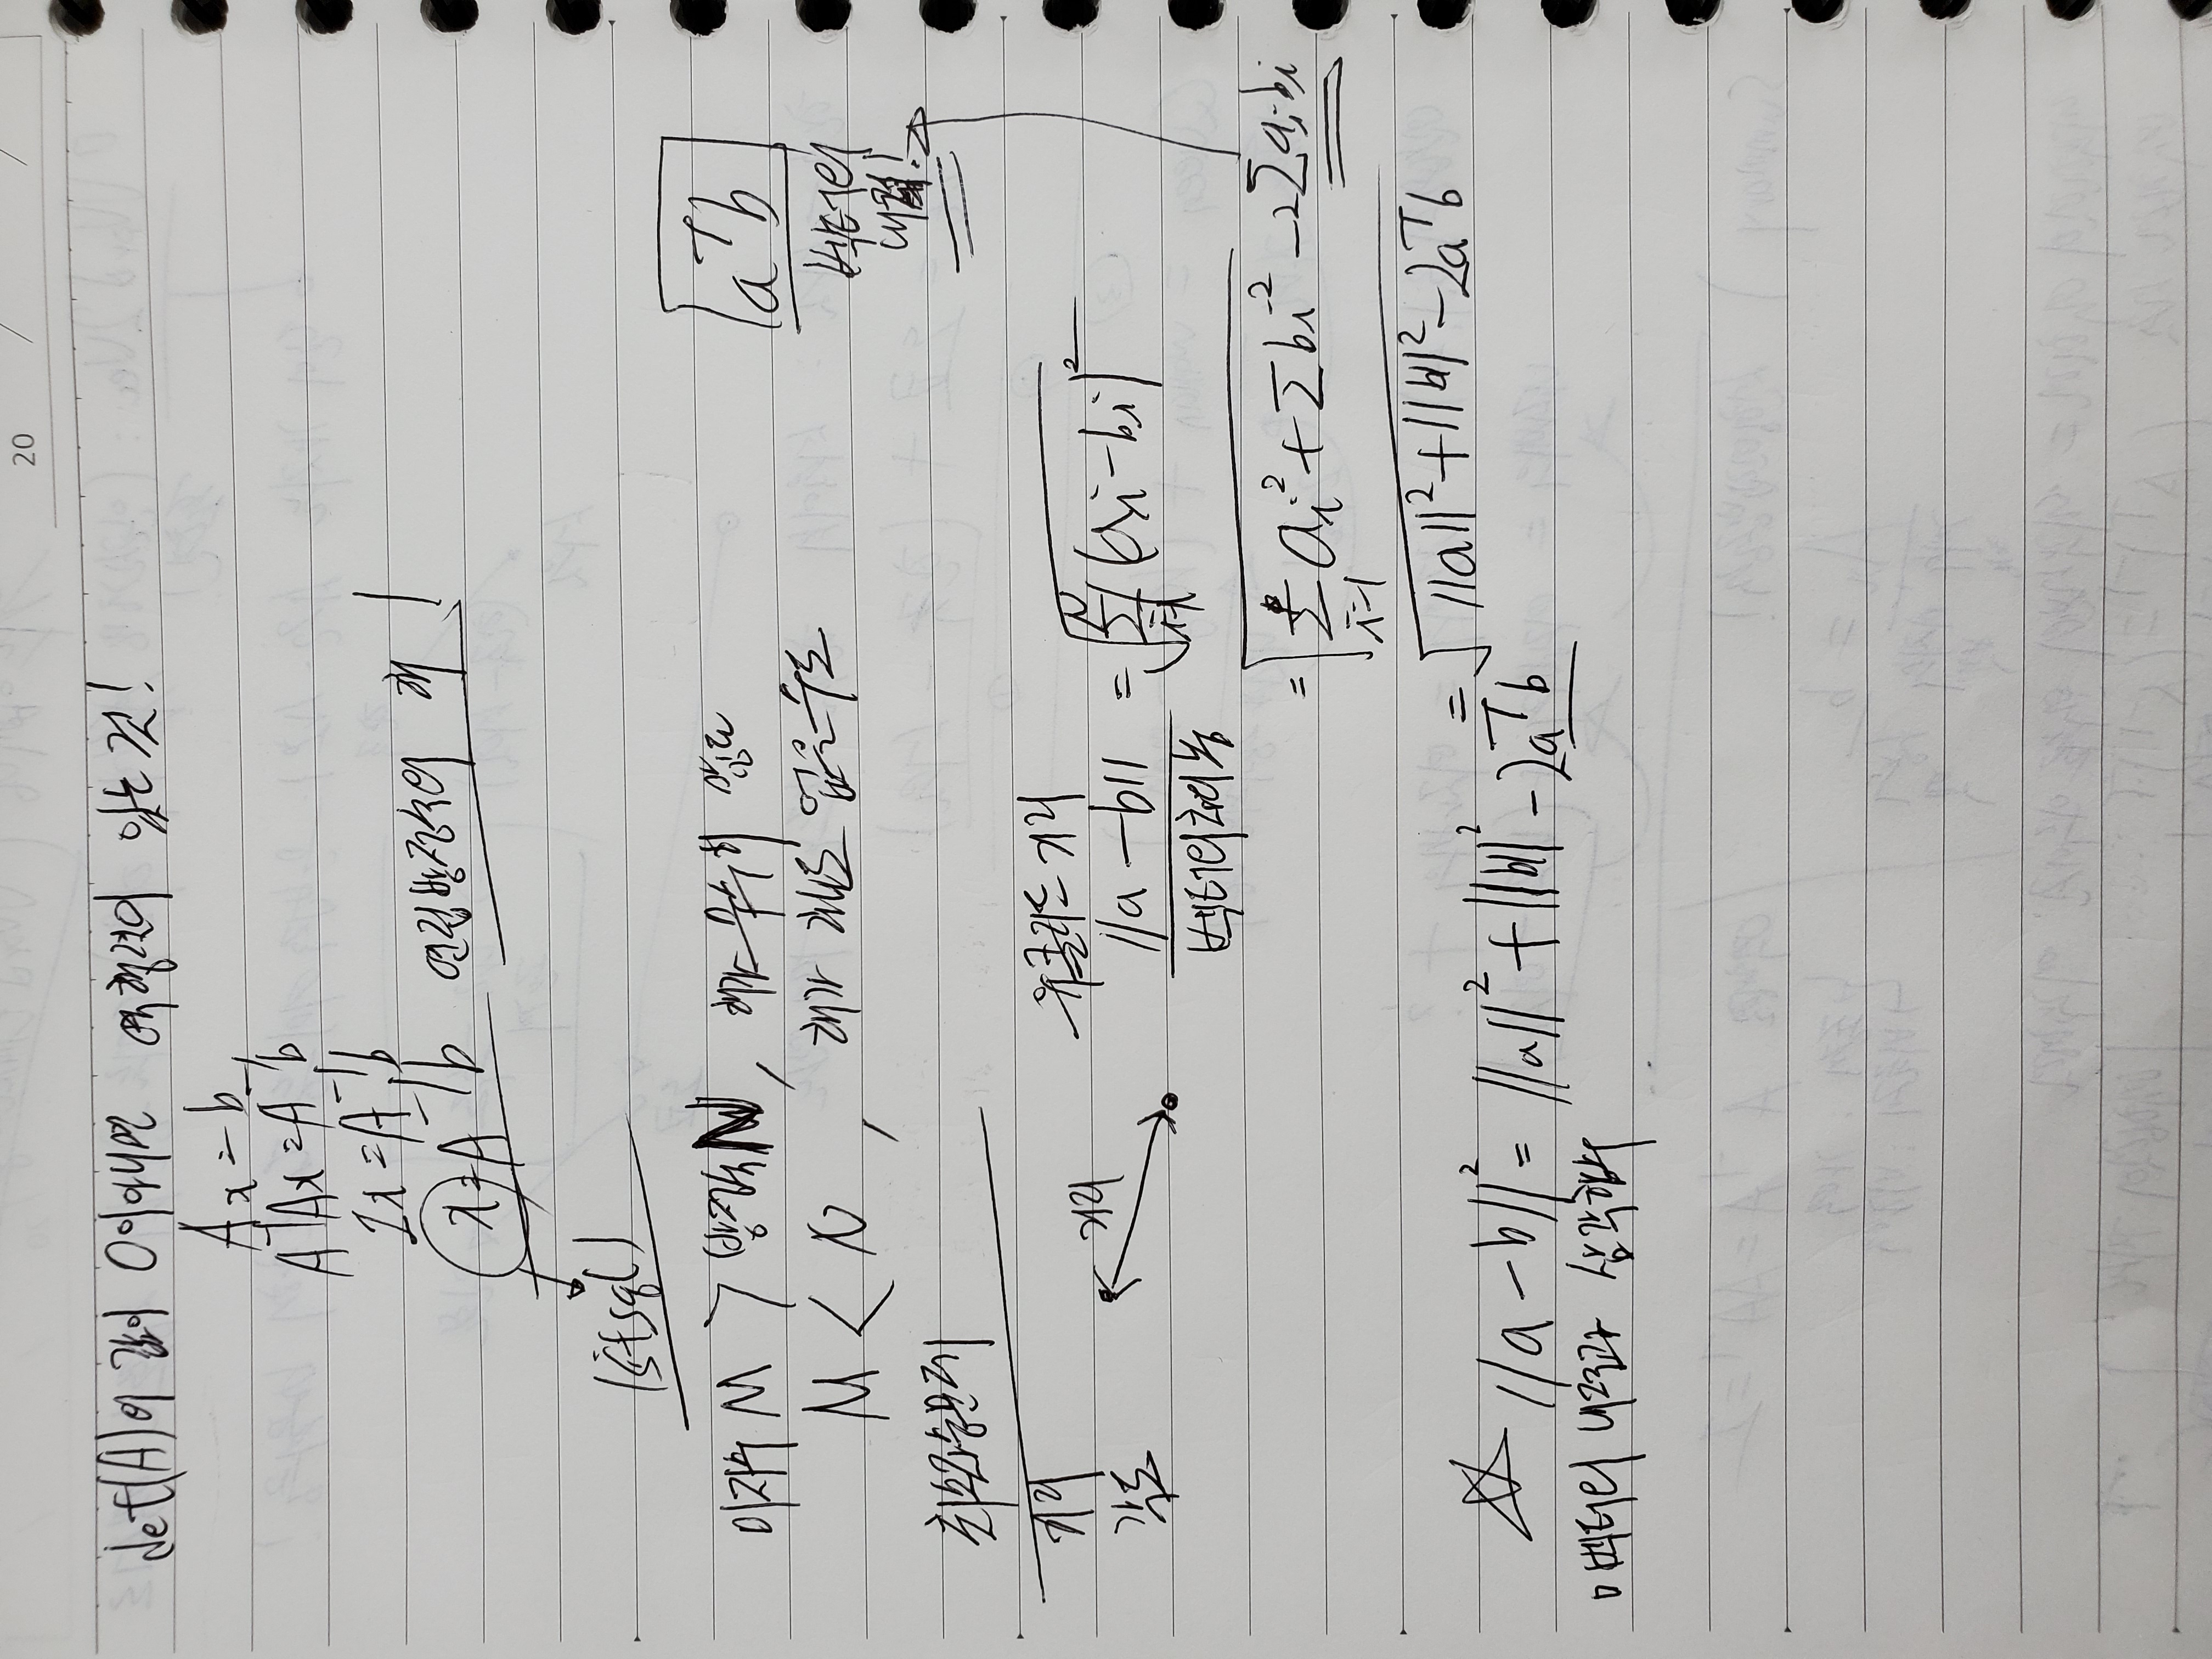 20 / /
det(A)의 값이 0이아니면 역행렬이 있는 것!
Ax = b
A⁻¹Ax = A⁻¹b
Ix = A⁻¹b
x = A⁻¹b 연립방정식의 해!
lstsq()
미지수 M > 방정식 N, 해가 무수히 많고
M < N, 해가 없을수도
aᵀb
벡터의
내적!
최소자승문제
거리
각도
거리
유클리드 거리
||a - b|| = √Σ(ai - bi)²
벡터의 차의 놈
= √Σ ai² + Σ bi² - 2Σ ai bi
i=1
= √||a||² + ||b||² - 2aᵀb
☆ ||a - b||² = ||a||² + ||b||² - 2aᵀb
벡터의 내적과 삼각함수